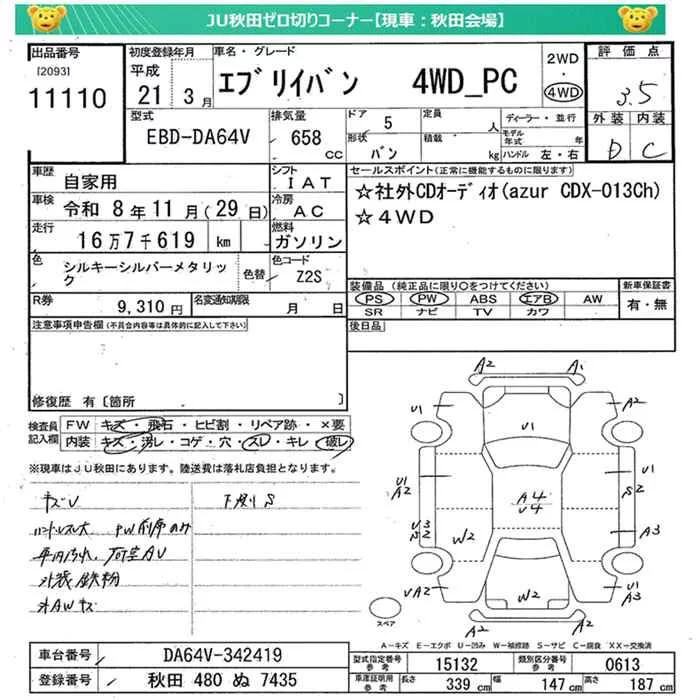 JU秋田ゼロ切りコーナー【現車：秋田会場】
出品番号 初度登録年月 車名・グレード 2WD 評価点
[2093] 平成 エブリイバン 4WD_PC ・ 3.5
11110 21年 3月 4WD 外装 内装
型式 排気量 ドア 5 定員 人 ディーラー・並行 D C
EBD-DA64V 658 CC 形状 バン 積載 kg モデル年式 年
ハンドル 左・右
車歴 自家用 シフト IAT セールスポイント(正常に機能するものに限ります)
車検 令和 8年11月(29日) 冷房 AC ☆社外CDオーディオ(azur CDX-013Ch)
走行 16万7千619 km 燃料 ガソリン ☆4WD
色 シルキーシルバーメタリック 色替 色コード Z2S
装備品 (純正品に限り○をつけてください) 新車保証書
PS PW ABS エアB AW 有・無
SR ナビ TV カワ
R券 9,310円 名変通知期限 月 日
後日品
注意事項申告欄(不具合内容等は具体的に記入して下さい)
修復歴 有〔箇所 〕
検査員記入欄 FW キズ・飛石・ヒビ割・リペア跡・×要
内装 キズ・汚レ・コゲ・穴・スレ・キレ・破レ
※現車はJU秋田にあります。陸送費は落札店負担となります。
キズU 下廻りS
外装鉄粉
A2 A1
U1 A2
U1
U1 A2 U1 S2
A4 U4
U3 S2 W2 A3
UA2 W2 A2
スペア
A-キズ E-エクボ U-凹み W-補修跡 S-サビ C-腐食 XX-交換済
車台番号 DA64V-342419
登録番号 秋田 480 ぬ 7435
型式指定番号 参考 15132 類別区分番号 参考 0613
車庫証明用 参考 長さ 339 cm 幅 147 cm 高さ 187 cm